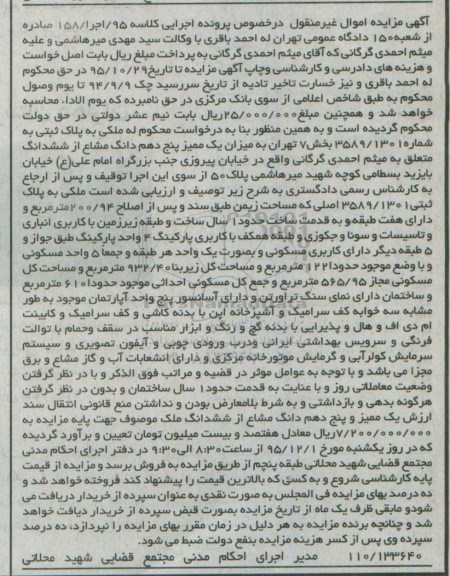 آگهی مزایده اموال غیرمنقول درخصوص پرونده اجرایی کلاسه ۹۵/اجرا/۱۵۸ صادره
از شعبه۱۵۰ دادگاه عمومی تهران له احمد باقری با وکالت سید مهدی میرهاشمی و علیه
میثم احمدی گرگانی که آقای میثم احمدی گرگانی به پرداخت مبلغ ریال بابت اصل خواست
و هزینه های دادرسی و کارشناسی وچاپ آگهی مزایده تا تاریخ۹۵/۱۰/۲۹ در حق محکوم
له احمد باقری و نیز خسارت تاخیر تادیه از تاریخ سررسید چک ۹۴/۹/۹ تا یوم وصول
محکوم به طبق شاخص اعلامی از سوی بانک مرکزی در حق نامبرده که یوم الادا، محاسبه
خواهد شد و همچنین مبلغ۲۵/۰۰۰/۰۰۰ریال بابت نیم عشر دولتی در حق دولت
محکوم گردیده است و به همین منظور بنا به درخواست محکوم له ملکی به پلاک ثبتی به
شماره۳۵۸۹/۱۳۰۱ بخش۷ تهران به میزان یک ممیز پنج دهم دانگ مشاع از ششدانگ
متعلق به میثم احمدی گرگانی واقع در خیابان پیروزی جنب بزرگراه امام علی(ع) خیابان
بایزید بسطامی کوچه شهید میرهاشمی پلاک۵۰ از سوی این اجرا توقیف و پس از ارجاع
به کارشناس رسمی دادگستری به شرح زیر توصیف و ارزیابی شده است ملکی به پلاک
ثبتی۳۵۸۹/۱۳۰۱ اصلی که مساحت زمین طبق سند و پس از اصلاح ۲۰۰/۹۴مترمربع و
دارای هفت طبقه‌و به قدمت ساخت حدود۱ سال ساخت و طبقه زیرزمین با کاربری انباری
و تاسیسات و سونا و جکوزی و طبقه همکف با کاربری پارکینگ ۴ واحد پارکینگ طبق جواز و
۵ طبقه دیگر دارای کاربری مسکونی و بصورت یک واحد هر طبقه و جمعا ۵ واحد مسکونی
و با وضع موجود حدودا۱۲۲ مترمربع و مساحت کل زیربنا۹۳۲/۴۰ مترمربع و مساحت کل
مسکونی مجاز ۵۶۵/۹۵ مترمربع و جمع کل مسکونی احداثی موجود حدودا۶۱۰ مترمربع
و ساختمان دارای نمای سنگ تراورتن و دارای آسانسور پنج واحد آپارتمان موجود به طور
مشابه سه خوابه کف سرامیک و آشپزخانه اپن با بدنه کاشی و کف سرامیک و کابینت
ام دی اف و هال و پذیرایی با بدنه گچ و رنگ و ابزار مناسب در سقف وحمام با توالت
فرنگی و سرویس بهداشتی ایرانی ودرب ورودی چوبی و آیفون تصویری و سیستم
سرمایش کولرآبی و گرمایش موتورخانه مرکزی و دارای انشعابات آب و گاز مشاع و برق
مجزا می باشد و با توجه به عوامل موثر در قضیه و مراتب فوق الذکر و با در نظر گرفتن
وضعیت معاملاتی روز و با عنایت به قدمت حدود۱ سال ساختمان و بدون در نظر گرفتن
هرگونه بدهی و بازداشتی و به شرط بلامعارض بودن و نداشتن منع قانونی انتقال سند
ارزش یک ممیز و پنج دهم دانگ مشاع از ششدانگ ملک موصوف جهت پایه مزایده به
۷/۲۰۰/۰۰۰/۰۰۰ریال معادل هفتصد و بیست میلیون تومان تعیین و برآورد گردیده
که در روز یکشنبه مورخ ۹۵/۱۲/۱ از ساعت۸:۳۰ الی۹:۳۰ در دفتر اجرای احکام مدنی
مجتمع قضایی شهید محلاتی طبقه پنجم از طریق مزایده به فروش برسد و مزایده از قیمت
پایه کارشناسی شروع و به کسی که بالاترین قیمت را پیشنهاد کند فروخته خواهد شد و
ده درصد بهای مزایده فی المجلس به صورت نقدی به عنوان سپرده از خریدار دریافت می
شود و مابقی ظرف یک ماه از تاریخ مزایده بصورت قبض سپرده از خریدار دیافت خواهد
شد و چنانچه برنده مزایده به هر دلیل در زمان مقرر بهای مزایده را نپردازد، ده درصد
سپرده وی پس از کسر هزینه مزایده بنفع دولت ضبط می شود.
۱۱۰/۱۳۳۶۴۰ مدیر اجرای احکام مدنی مجتمع قضایی شهید محلاتی